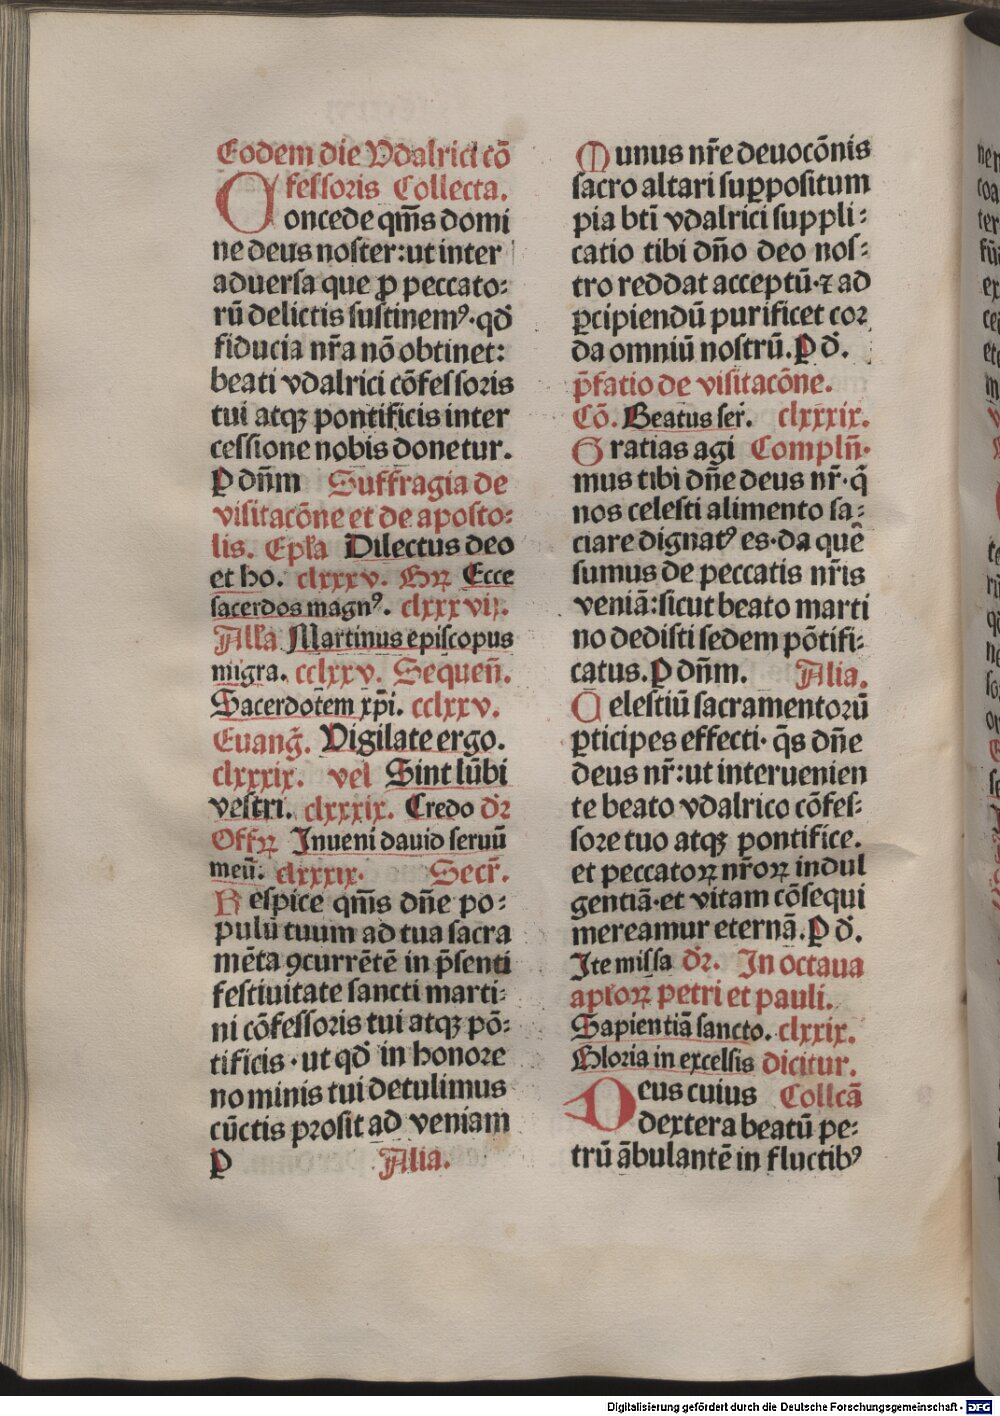 Eodem die Vdalrici cō
feſſoris Collecta.
Concede qm̄s domi
ne deus noſter:ut inter
aduerſa que ꝓ peccato⸗
rū delictis ſuſtinemꝰ·qd̓
fiducia nr̄a nō obtinet:
beati vdalrici cōfeſſoris
tui atqꝫ pontificis inter
ceſſione nobis donetur.
P dn̄m Suffragia de
viſitacōne et de apoſto⸗
lis. Ep̄la Dilectus deo
et ho. clxxxv. Gꝝ Ecce
ſacerdos magnꝰ. clxxxvij.
All̄a Martinus epiſcopus
migra. cclxxv. Sequen̄.
Sacerdotem xp̄i. cclxxv.
Euang̃. Vigilate ergo.
clxxxix. vel Sint lūbi
veſtri. clxxxix. Credo dr̄
Offꝝ Inueni dauid ſeruū
meū. clxxxix. Secr̄.
Reſpice qm̄s dn̄e po⸗
pulū tuum ad tua ſacra
mēta ꝯcurrētē in p̄ſenti
feſtiuitate ſancti marti⸗
ni cōfeſſoris tui atqꝫ pō⸗
tificis·ut qd̓ in honore
nominis tui detulimus
cūctis proſit ad veniam
P Alia.
Munus nr̄e deuocōnis
ſacro altari ſuꝑpoſitum
pia bti̅ vdalrici ſuppli⸗
catio tibi dn̄o deo noſ⸗
tro reddat acceptū·⁊ ad
ꝑcipiendū purificet cor
da omniū noſtrū. P d̓.
p̄fatio de viſitacōne.
Cō. Beatus ſer̓. clxxxix.
Gratias agi Compln̄.
mus tibi dn̄e deus nr̄·q̄
nos celeſti alimento ſa⸗
ciare dignatꝰ es·da quē
ſumus de peccatis nr̄is
veniā:ſicut beato marti
no dediſti ſedem pōtifi⸗
catus. P dn̄m. Alia.
Celeſtiū ſacramentorū
ꝑticipes effecti· q̄s dn̄e
deus nr̄:ut interuenien
te beato vdalrico cōfeſ⸗
ſore tuo atqꝫ pontifice.
et peccatoꝝ nr̄oꝝ indul
gentiā·et vitam cōſequi
mereamur eternā. P d̓.
Ite miſſa dr̄. In octaua
apl̄oꝝ petri et pauli.
Sapientiā ſancto. clxxix.
Gloria in excelſis dicitur.
Deus cuius Collcā
dextera beatū pe⸗
trū ābulantē in fluctibꝰ
Digitalisierung gefördert durch die Deutsche Forschungsgemeinschaft - DFG